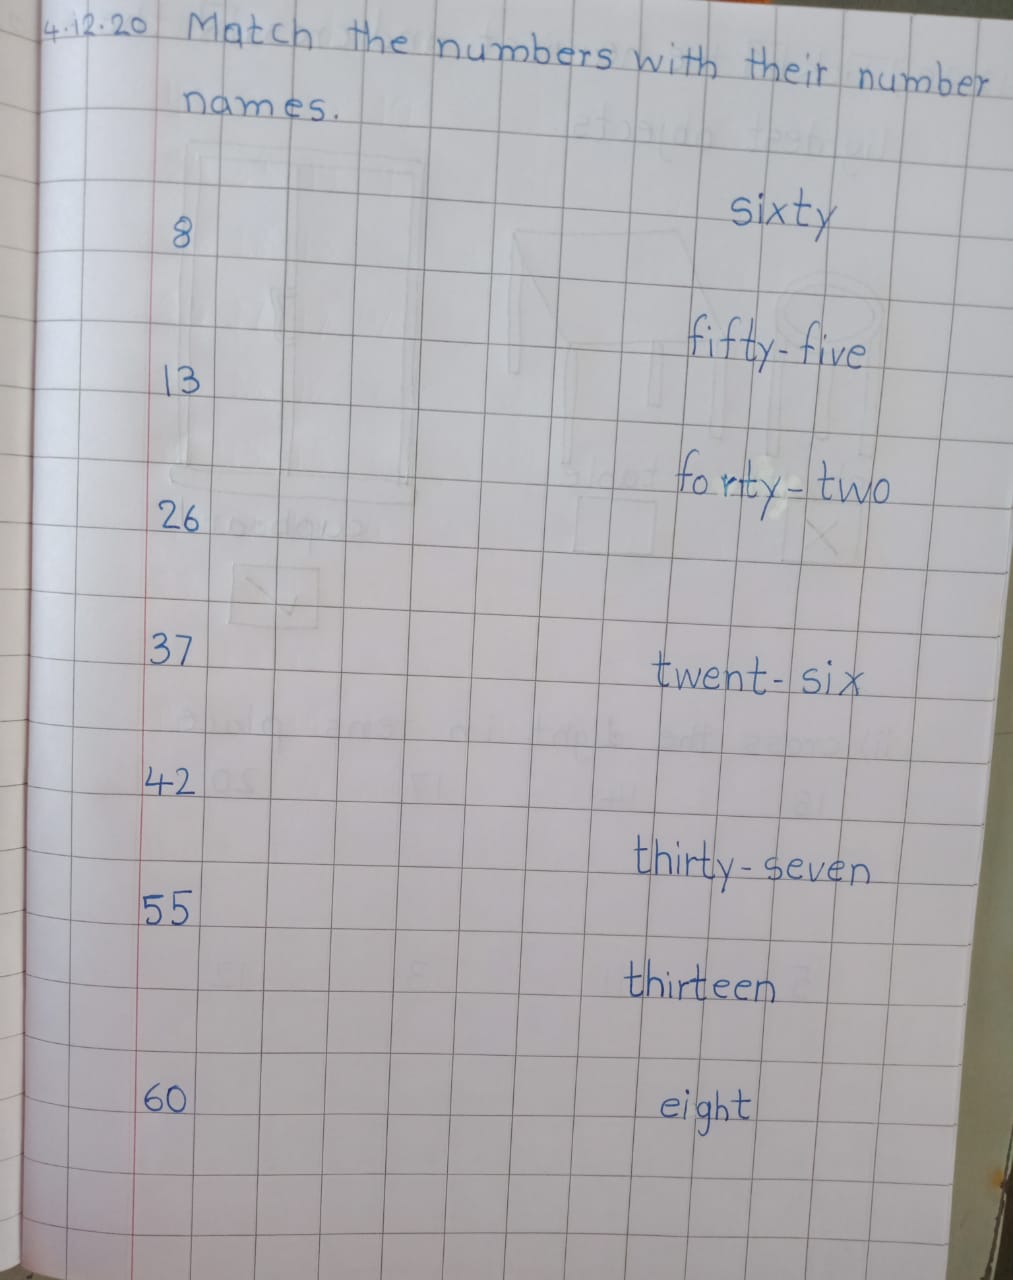 4.12.20 Match the numbers with their number
names.
sixty
8
fifty-five
13
forty-two
26
37
twent-six
42
thirty-seven
55
thirteen
60
eight